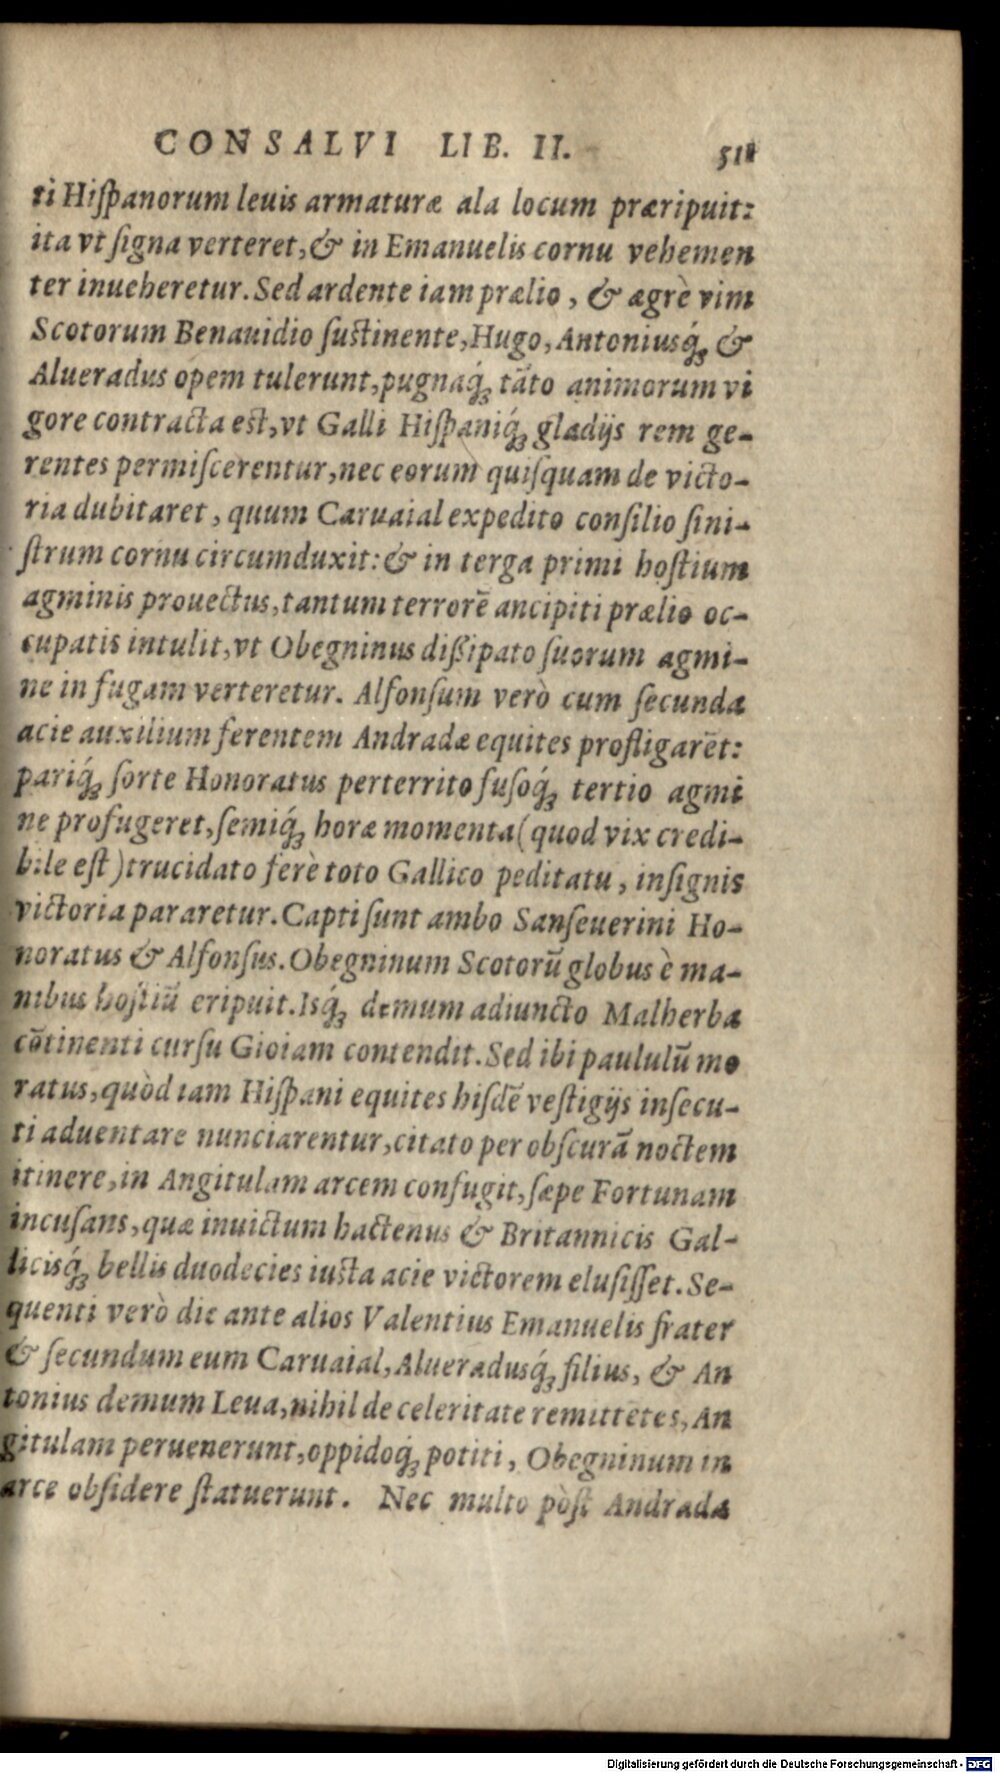 CONSALVI LIB. II. 511
ti Hiſpanorum leuis armaturæ ala locum præripuit:
ita vt ſigna verteret, & in Emanuelis cornu vehemen
ter inueheretur. Sed ardente iam prælio, & ægrè vim
Scotorum Benauidio ſuſtinente, Hugo, Antoniusq́ꝫ &
Alueradus opem tulerunt, pugnaq́ꝫ tāto animorum vi
gore contracta eſt, vt Galli Hiſpaniq́ꝫ gladijs rem ge-
rentes permiſcerentur, nec eorum quiſquam de victo-
ria dubitaret, quum Caruaial expedito conſilio ſini-
ſtrum cornu circumduxit: & in terga primi hoſtium
agminis prouectus, tantum terrorē ancipiti prælio oc-
cupatis intulit, vt Obegninus dißipato ſuorum agmi-
ne in fugam verteretur. Alfonſum verò cum ſecunda
acie auxilium ferentem Andradæ equites profligarēt:
pariq́ꝫ ſorte Honoratus perterrito fuſoq́ꝫ tertio agmi
ne profugeret, ſemiq́ꝫ horæ momenta (quod vix credi-
bile eſt) trucidato ferè toto Gallico peditatu, inſignis
victoria pararetur. Capti ſunt ambo Sanſeuerini Ho-
noratus & Alfonſus. Obegninum Scotorū globus è ma-
nibus hoſtiū eripuit. Isq́ꝫ demum adiuncto Malherba
cōtinenti curſu Gioiam contendit. Sed ibi paululū mo
ratus, quòd iam Hiſpani equites hiſdē veſtigijs inſecu-
ti aduentare nunciarentur, citato per obſcurā noctem
itinere, in Angitulam arcem confugit, ſæpe Fortunam
incuſans, quæ inuictum hactenus & Britannicis Gal-
licisq́ꝫ bellis duodecies iuſta acie victorem eluſiſſet. Se-
quenti verò die ante alios Valentius Emanuelis frater
& ſecundum eum Caruaial, Alueradusq́ꝫ filius, & An
tonius demum Leua, nihil de celeritate remittētes, An
gitulam peruenerunt, oppidoq́ꝫ potiti, Obegninum in
arce obſidere ſtatuerunt. Nec multo pòſt Andrada
Digitalisierung gefördert durch die Deutsche Forschungsgemeinschaft - DFG